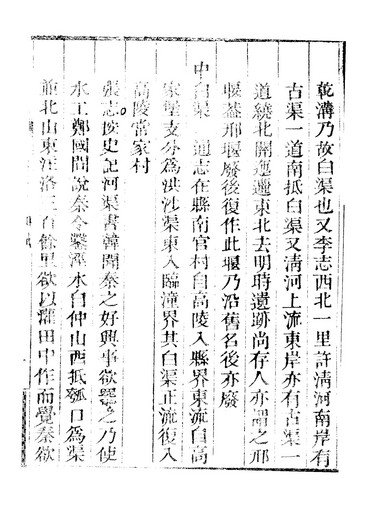 乾溝乃故白渠也又李志西北一里許淸河南岸有
古渠一道南抵白渠又淸河上流東岸亦有古渠一
道繞北開迤邐東北去明時遺跡尚存人亦謂之邢
堰葢邢堰廢後復作此堰乃沿舊名後亦廢
中白渠 通志在縣南官村自高陵入縣界東流自高
家堡支分爲洪沙渠東入臨潼界其白渠正流復入
高陵當家村
張志按史記河渠書韓聞秦之好興事欲罷之乃使
水工鄭國間說秦令鑿涇水自仲山西抵瓠口爲渠
並北山東注洛三百餘里欲以灌田中作而覺秦欲